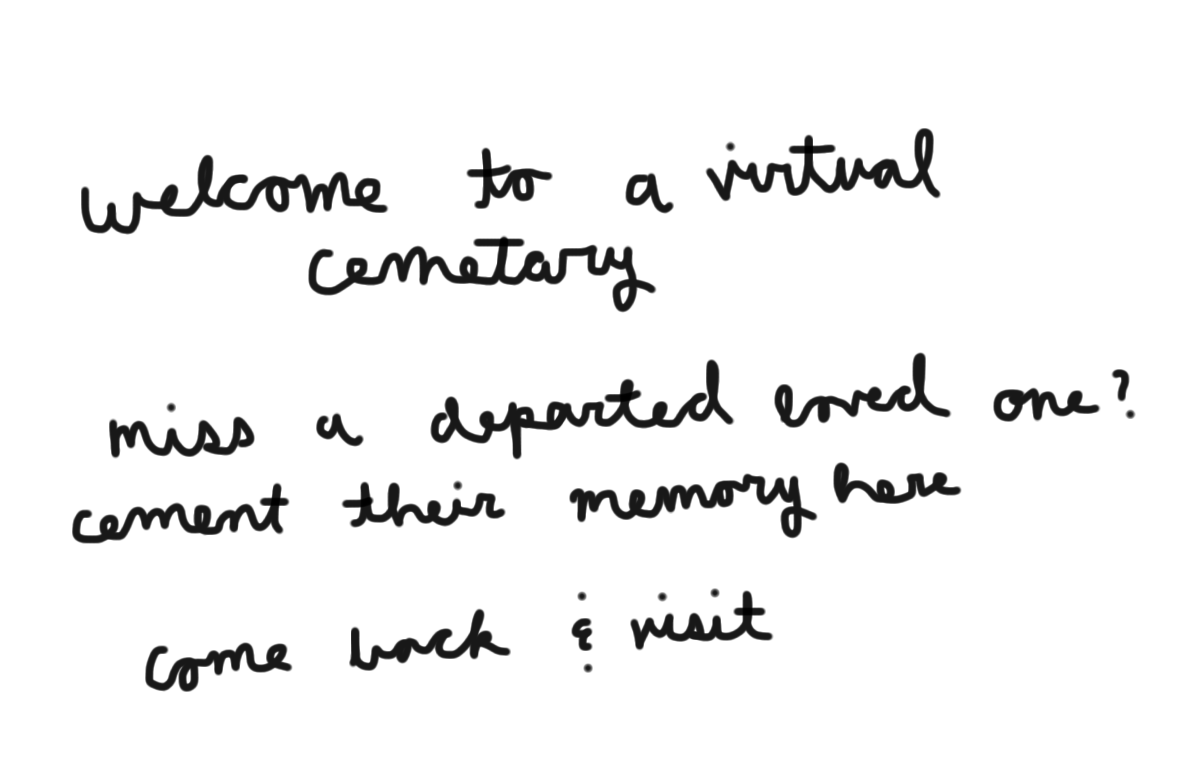 welcome to a virtual
cemetary
miss a departed loved one?
cement their memory here
come back & visit